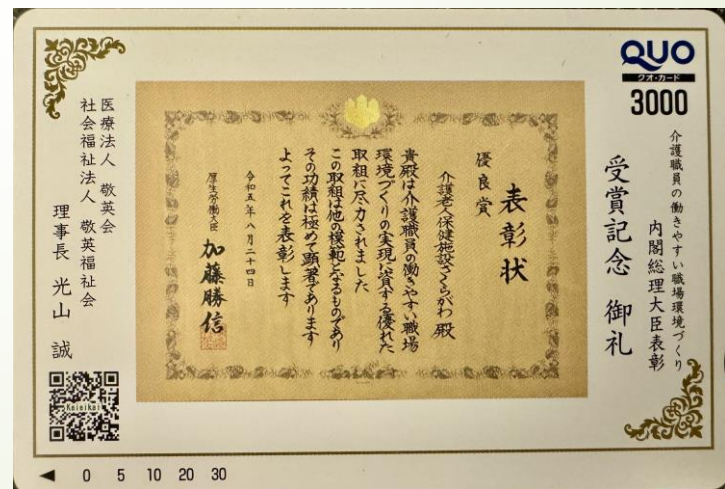 QUO
クオ・カード
3000
介護職員の働きやすい職場環境づくり
内閣総理大臣表彰
受賞記念 御礼
表彰状
優良賞
介護老人保健施設さくらがわ 殿
貴殿は介護職員の働きやすい職場
環境づくりの実現に資する優れた
取組に尽力されました
この取組は他の模範となるものであり
その功績は極めて顕著であります
よってこれを表彰します
令和五年八月二十四日
厚生労働大臣 加藤勝信
医療法人 敬英会
社会福祉法人 敬英福祉会
理事長 光山 誠
Keieikai
◀ 0 5 10 20 30